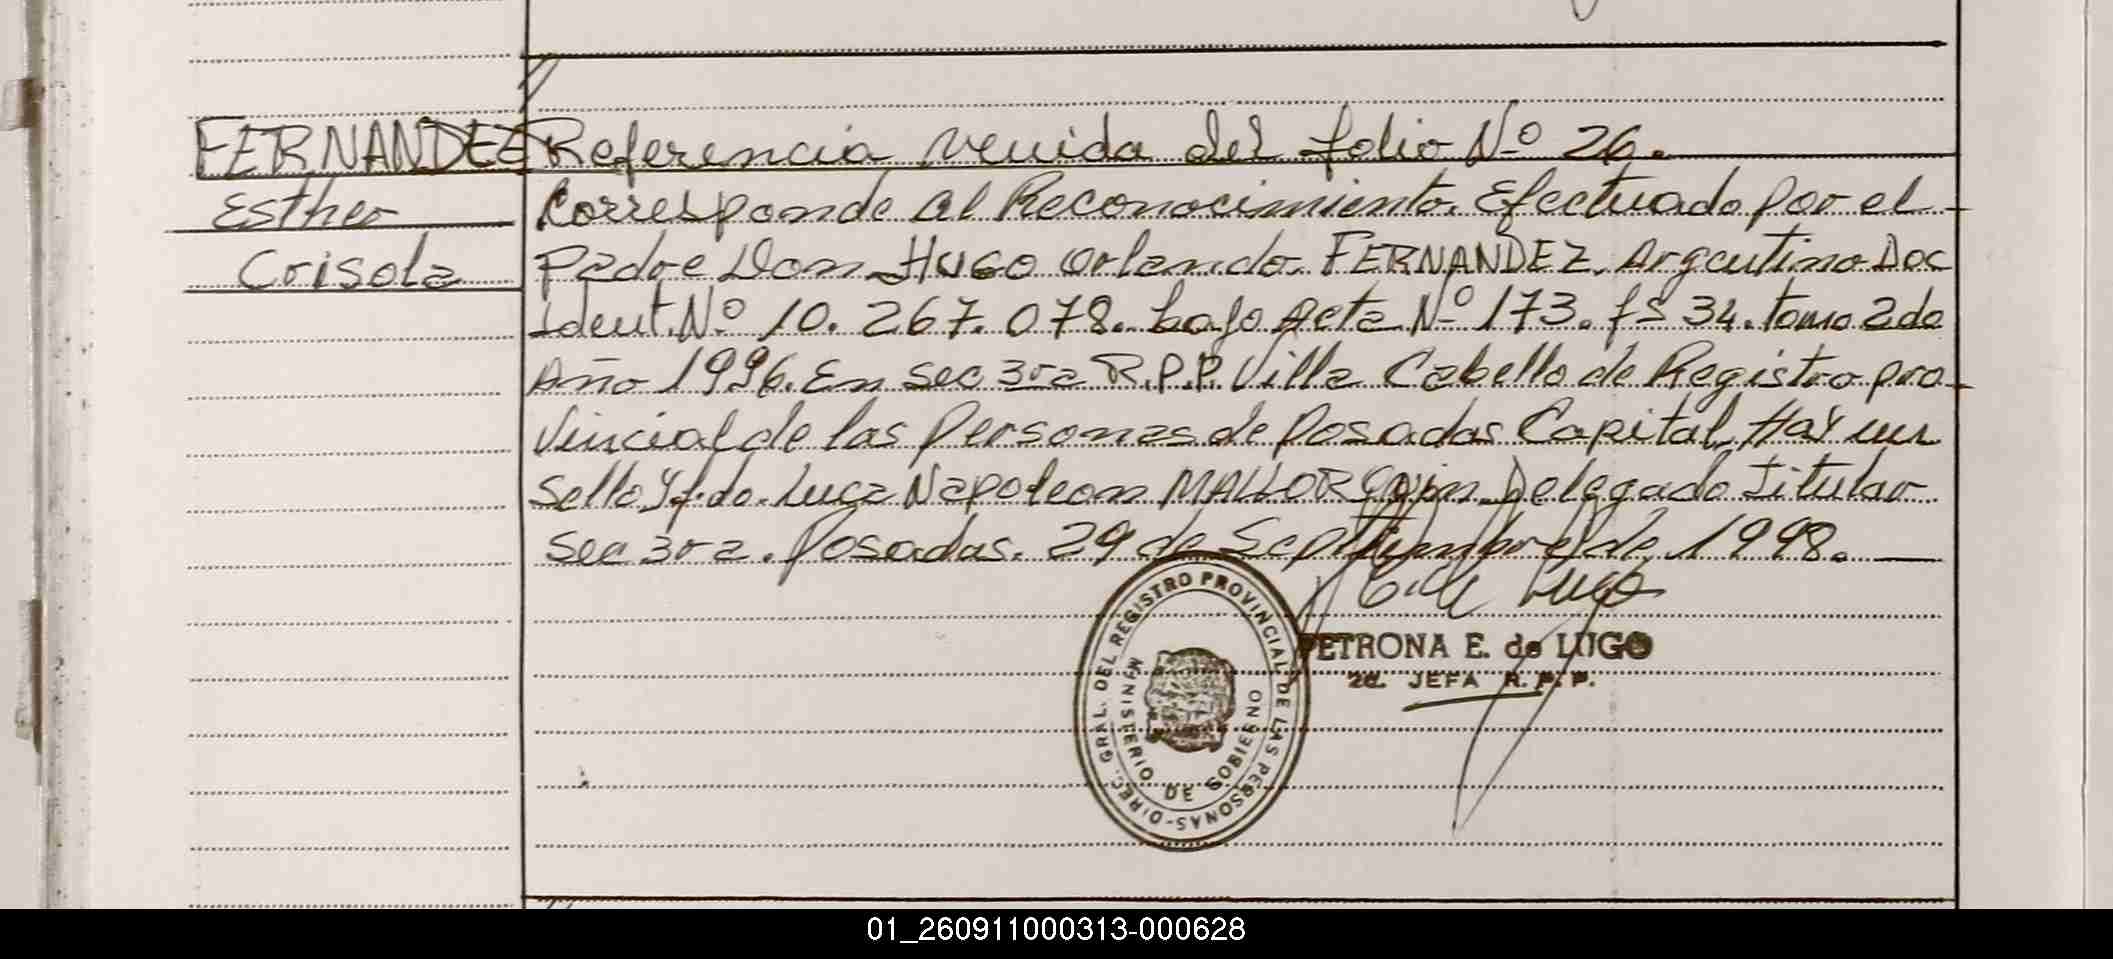 FERNANDEZ
Esther
Crisola
Referencia venida del folio Nº 26.
Corresponde al Reconocimiento. Efectuado por el
Padre Don Hugo Orlando. FERNANDEZ. Argentino Doc
Ident. Nº 10.267.078. bajo Acta Nº 173. fs 34. tomo 2do
Año 1996. En sec 3ra R.P.P. Villa Cabello de Registro pro
vincial de las Personas de Posadas Capital. Hay un
Sello y f.do. Luca Napoleon MALLORQuin. Delegado Titular
sec 3ra. Posadas. 29 de Septiembre de 1998.
PETRONA E. de LUGO
2a. JEFA R.P.P.
DIREC. GRAL. DEL REGISTRO PROVINCIAL DE LAS PERSONAS-
MINISTERIO DE GOBIERNO
01_260911000313-000628